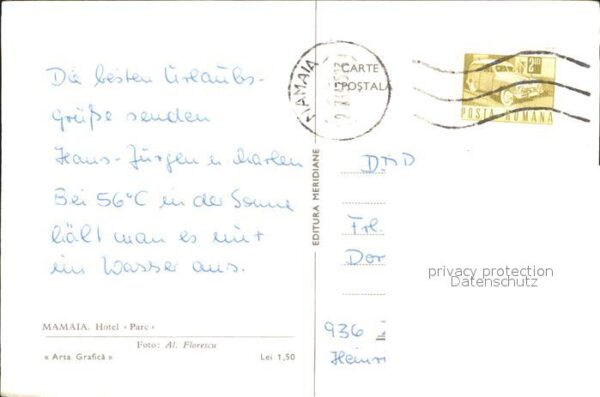 Die besten Urlaubs-
grüße senden
Hans-Jürgen u. Marlen
Bei 56°C in der Sonne
hält man es nur
im Wasser aus.
MAMAIA. Hotel «Parc»
Foto: Al. Florescu
« Arta Grafică » Lei 1,50
EDITURA MERIDIANE
MAMAIA
CARTE
POȘTALĂ
2,40
POSTA ROMÂNA
DDR
Frl.
Dor
privacy protection
Datenschutz
936
Heinri